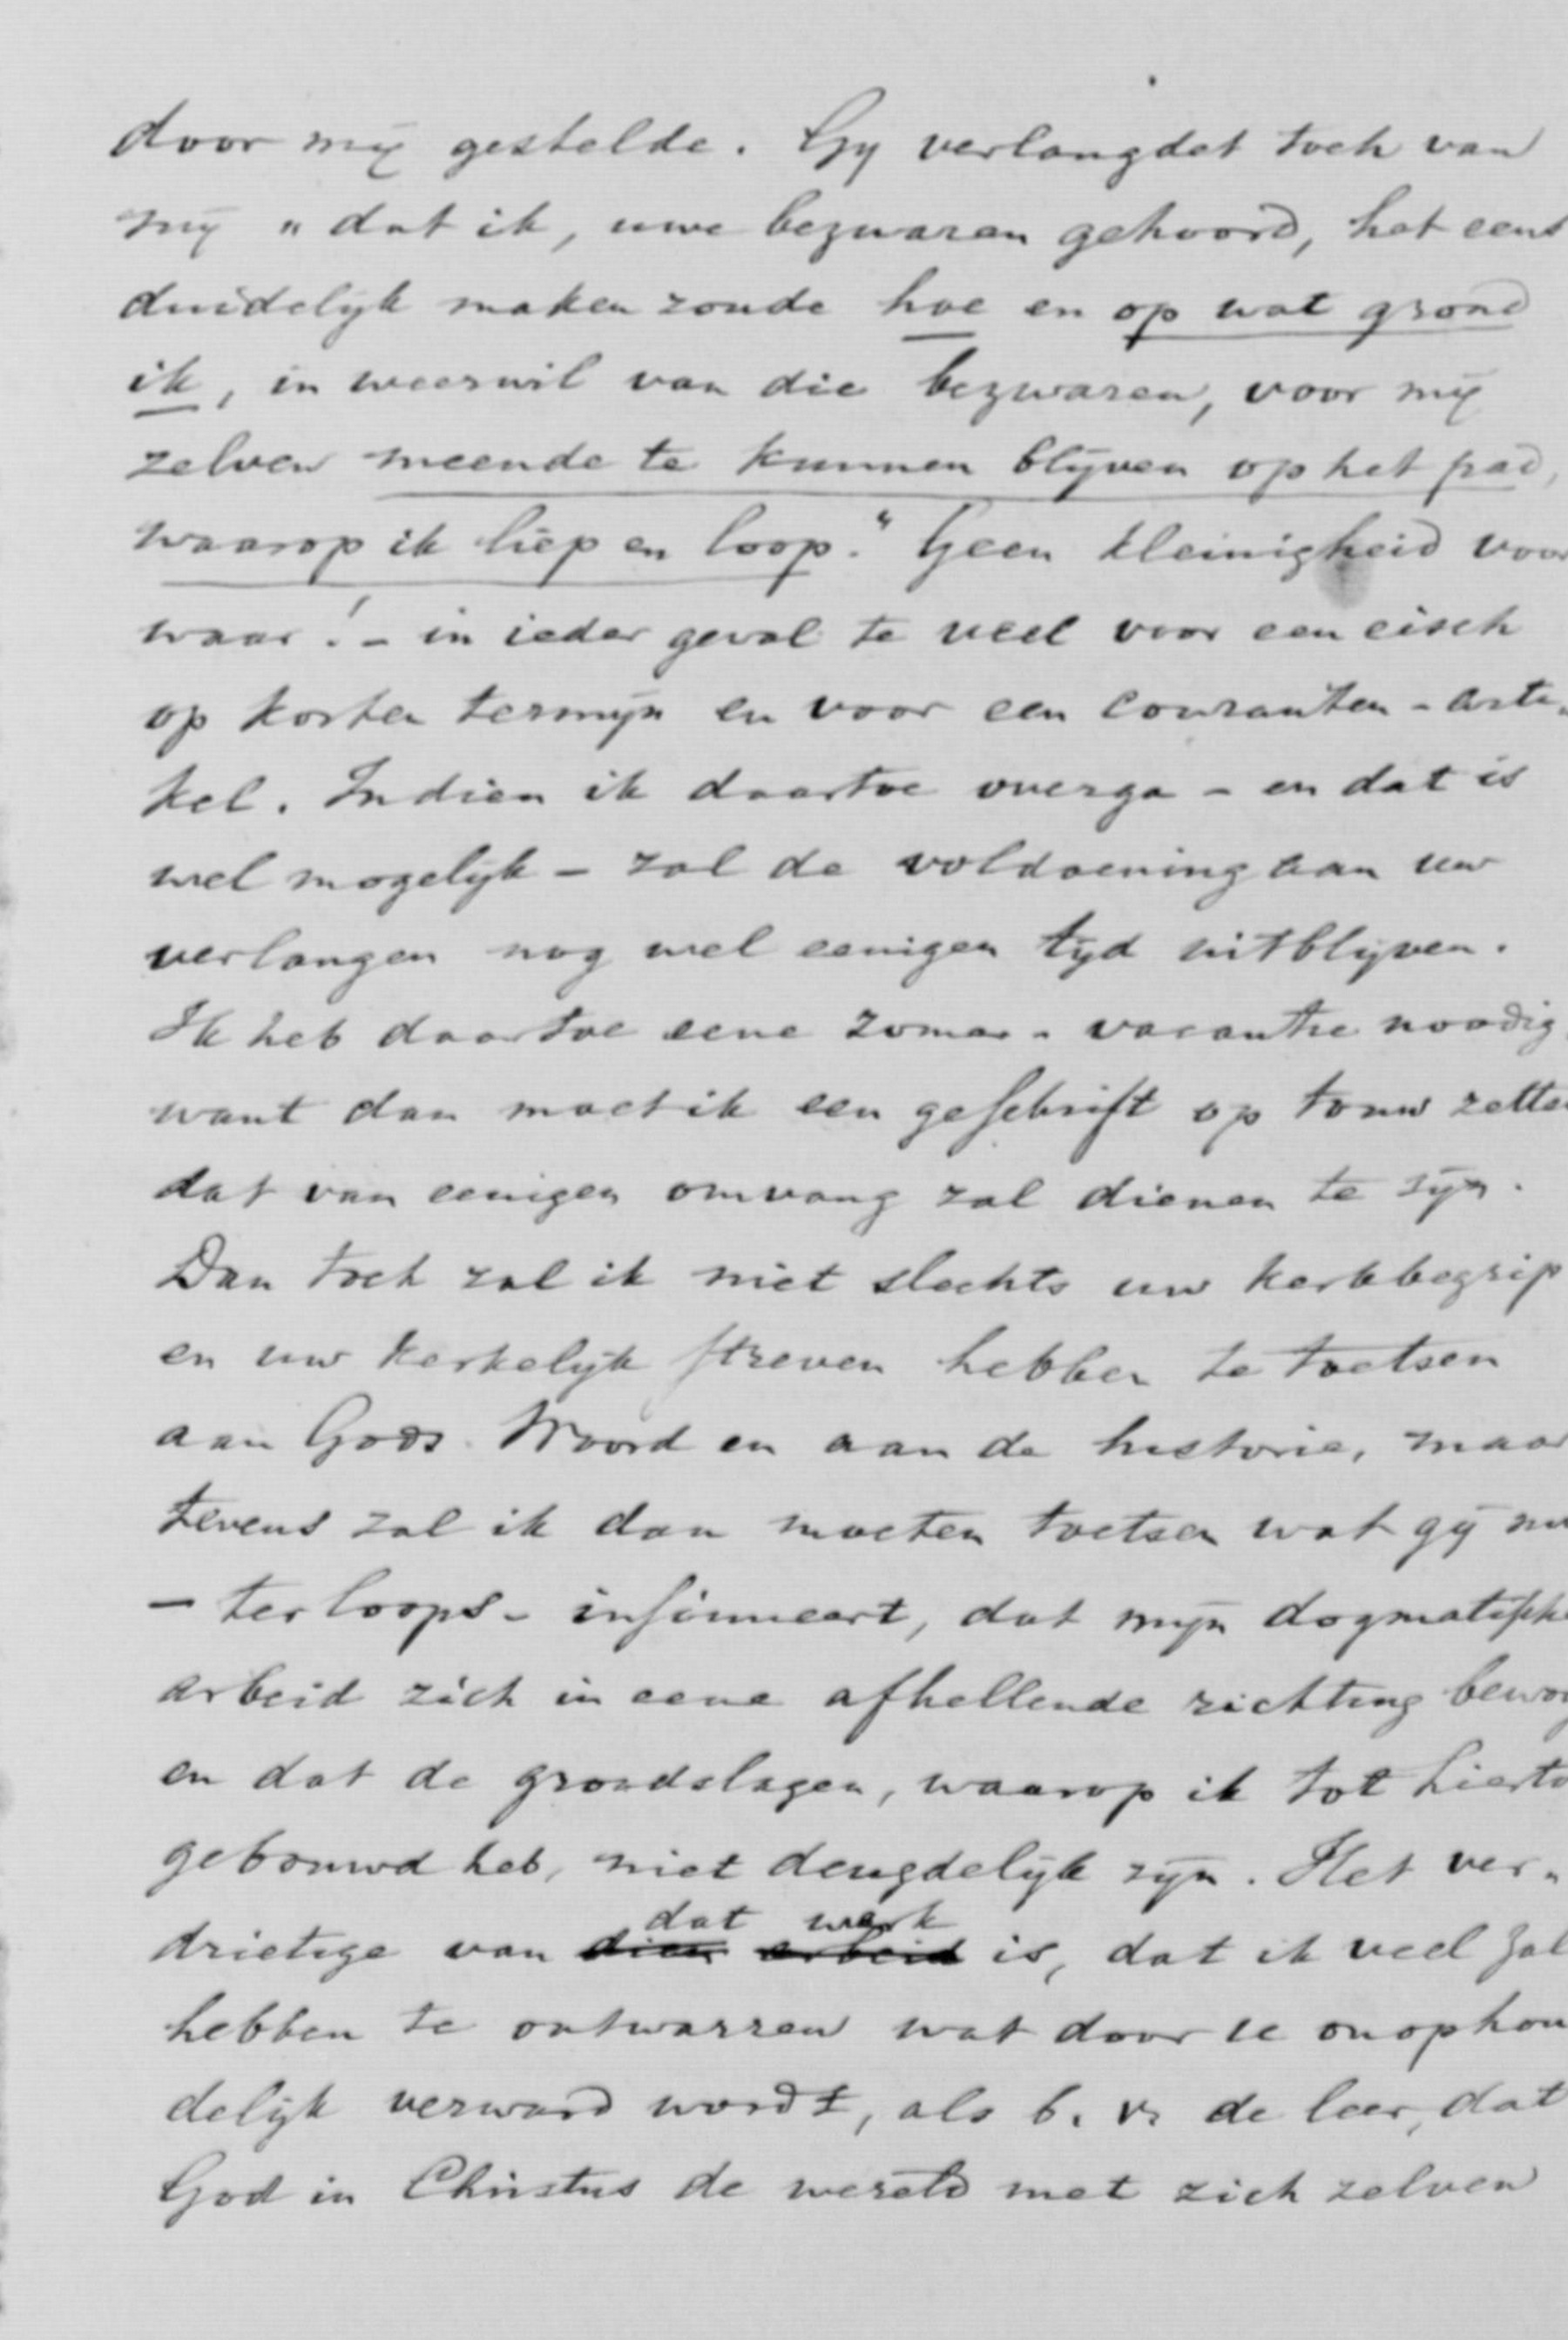 door mij gestelde. Gij verlangdet toch van
mij "dat ik, uwe bezwaren gehoord, het eens
duidelijk maken zoude hoe en op wat grond
ik, in weerwil van die bezwaren, voor mij
zelven meende te kunnen blijven op het pad,
waarop ik liep en loop." Geen kleinigheid voor
waar! - in ieder geval te veel voor een eisch
op korten termijn en voor een couranten-arti-
kel. Indien ik daartoe overga - en dat is
wel mogelijk - zal de voldoening aan uw
verlangen nog wel eenigen tijd uitblijven.
Ik heb daartoe eene zomer-vacantie noodig,
want dan moet ik een geschrift op touw zetten
dat van eenigen omvang zal dienen te zijn.
Dan toch zal ik niet slechts uw kerkbegrip
en uw kerkelijk streven hebben te toetsen
aan Gods Woord en aan de historie, maar
tevens zal ik dan moeten toetsen wat gij nu
- terloops - insinueert, dat mijn dogmatische
arbeid zich in eene afhellende richting bewoog
en dat de grondslagen, waarop ik tot hierto
gebouwd heb, niet deugdelijk zijn. Het ver-
drietige van dien arbeid dat werk is, dat ik veel zal
hebben te ontwarren wat door u onophou
delijk verward wordt, als b.v. de leer, dat
God in Christus de wereld met zich zelven